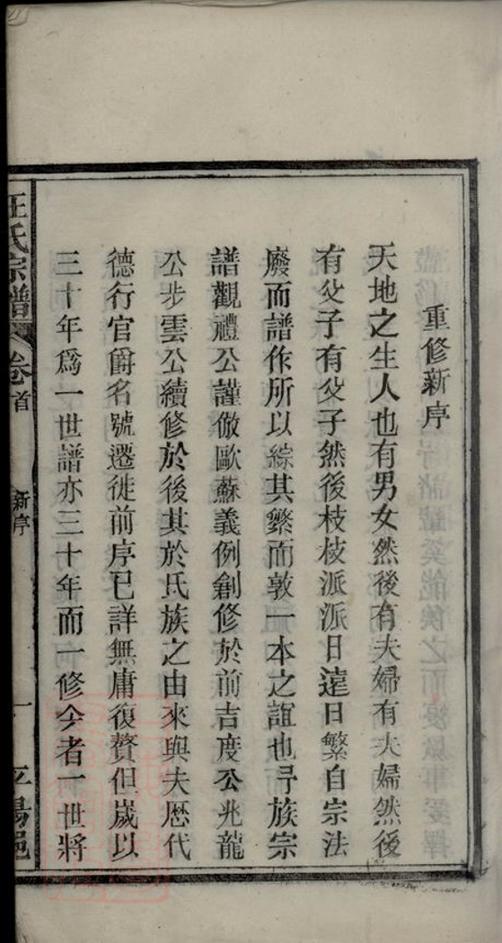 重修新序
天地之生人也有男女然後有夫婦有夫婦然後
有父子有父子然後枝枝派派日遠日繁自宗法
廢而譜作所以綜其繁而敦一本之誼也吾族宗
譜觀禮公謹倣歐蘇義例創修於前吉度公兆龍
公步雲公續修於後其於氏族之由來與夫歷代
德行官爵名號遷徙前序已詳無庸復贅但歲以
三十年爲一世譜亦三十年而一修今者一世將
汪氏宗譜 卷首 新序 一 平陽邑